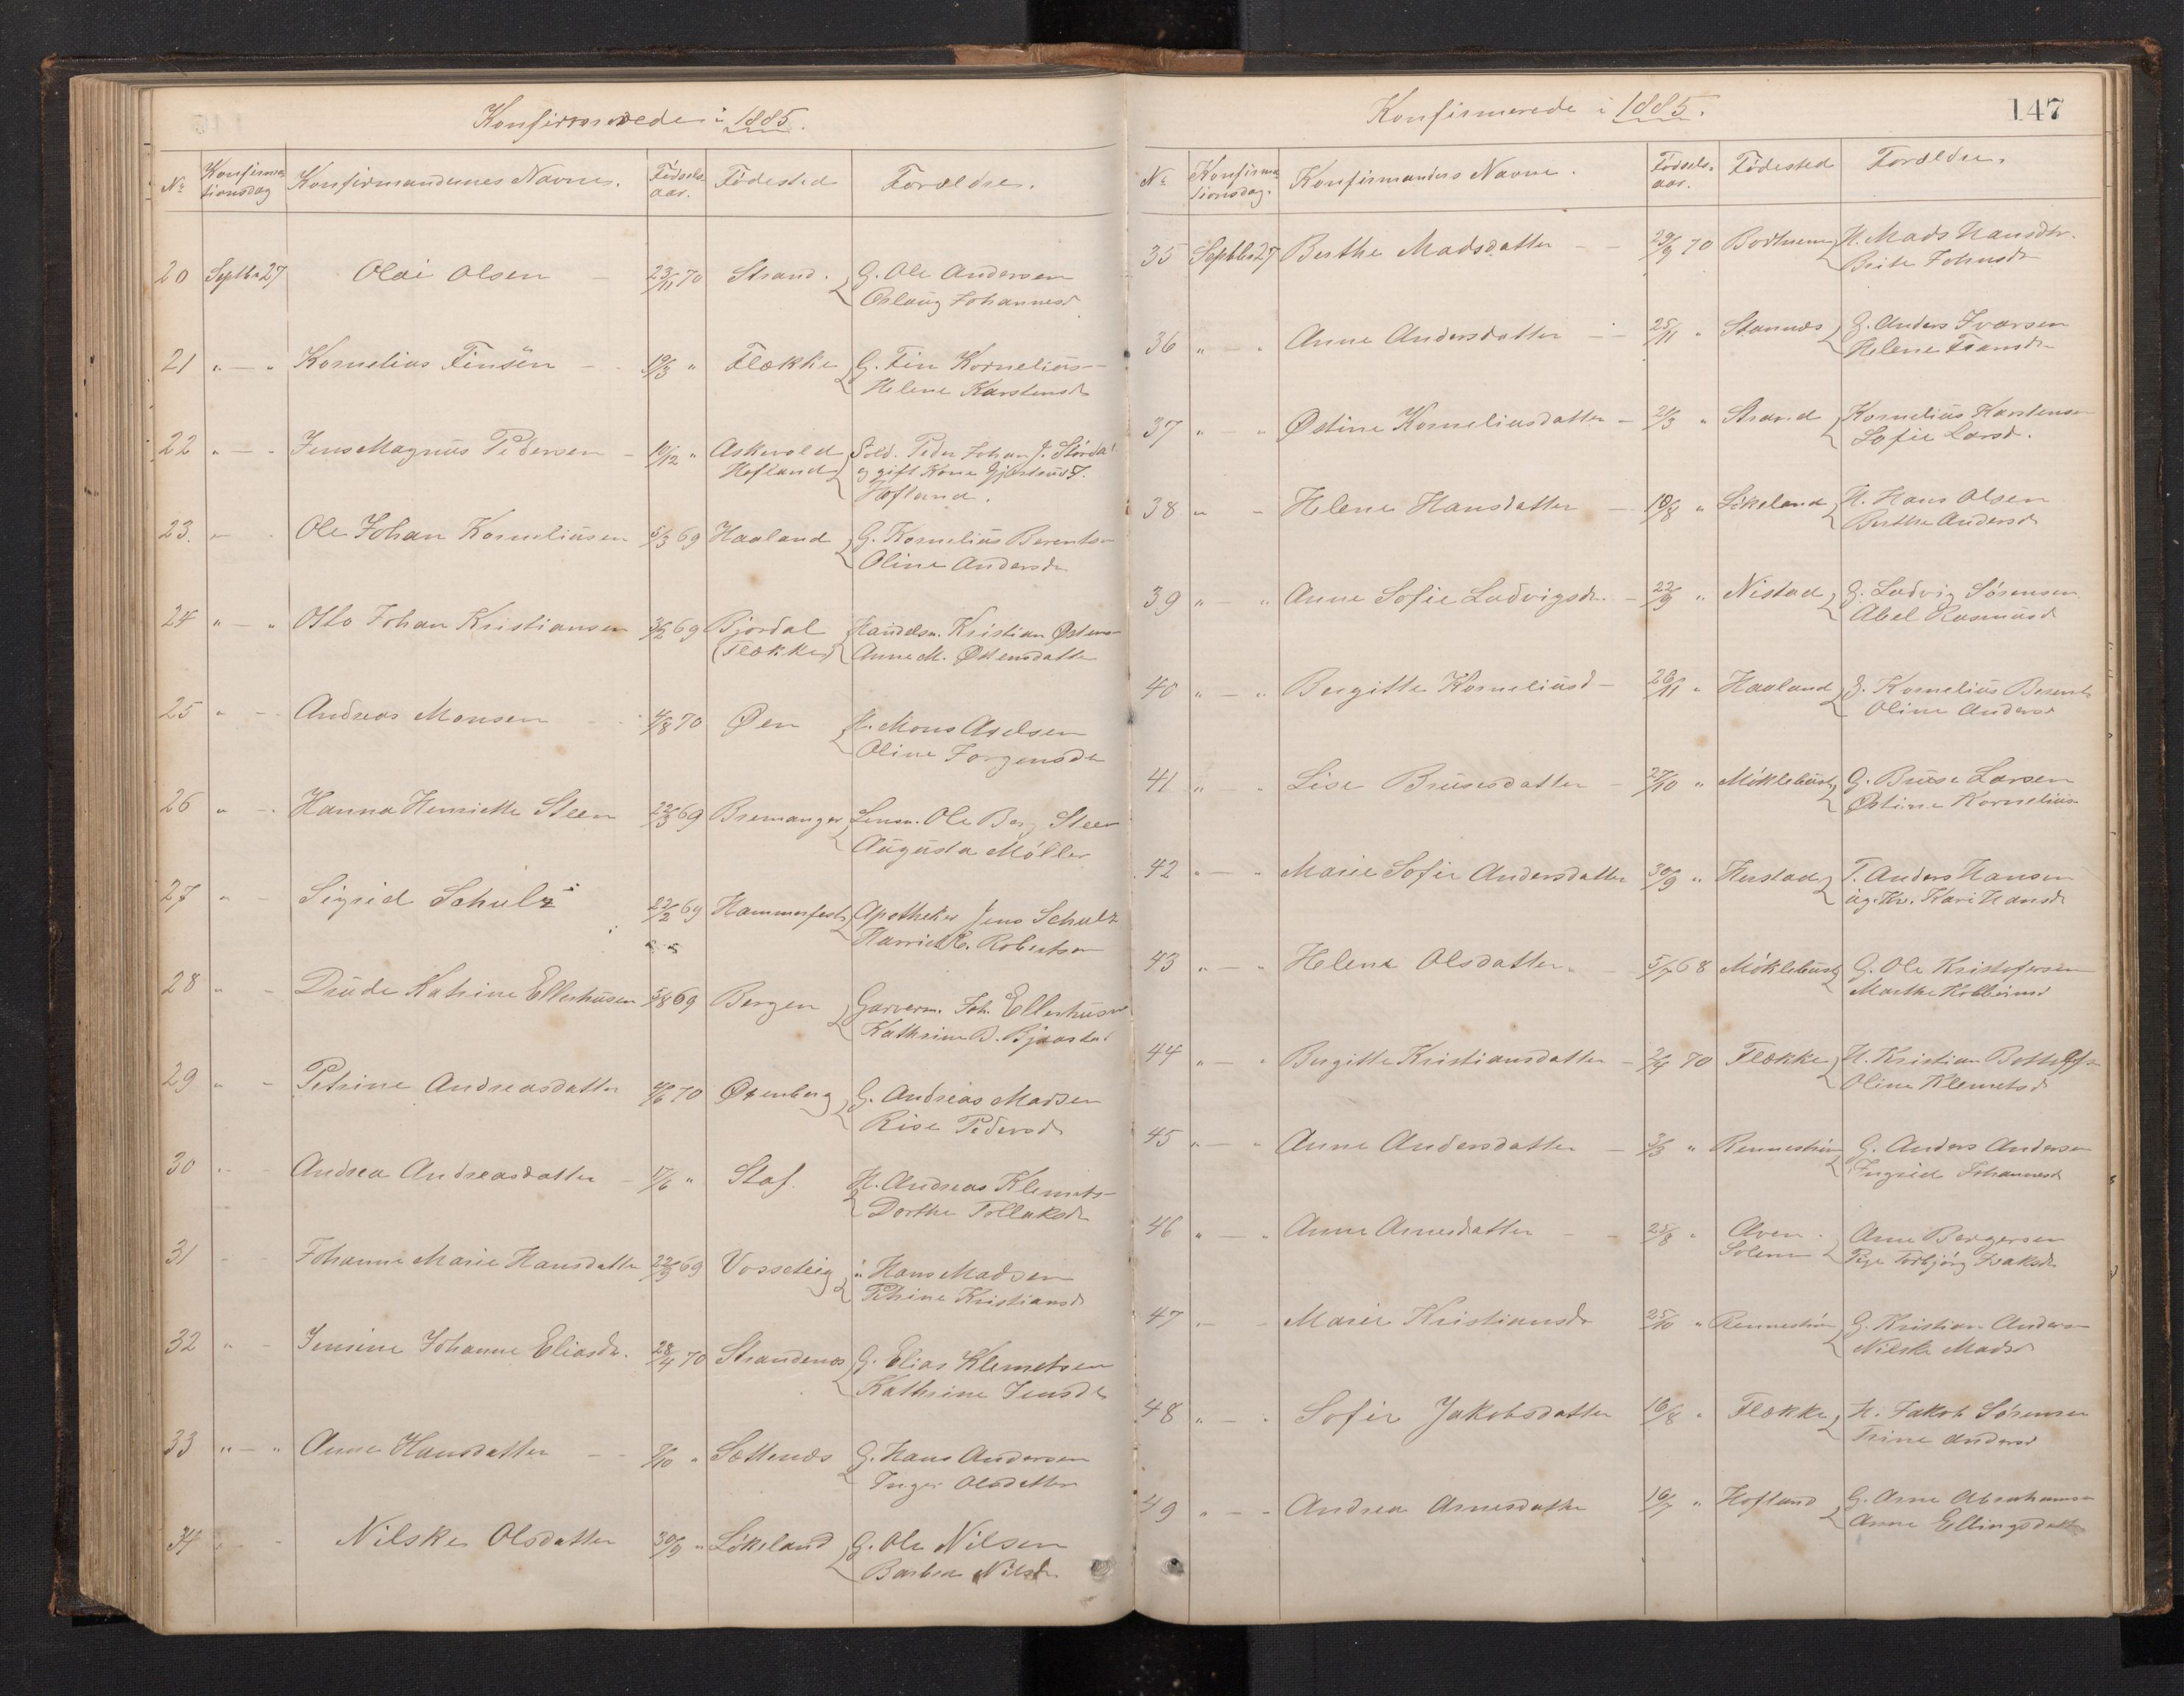 Konfirmerede i 1885.
No Konfirma-tionsdag Konfirmandernes Navne. Fødsels-aar. Fødested Forældre.
20 Septbr 27 Olai Olsen 23/11 70 Strand. G. Ole Andersen
Oslaug Johannesd
21 " — " Kornelius Finsen 19/3 " Flekke G. Fin Kornelius-
Helene Karstensd
22 " — " Jens Magnus Pedersen 10/12 " Askevold Sold. Peder Johan J. Stördal
Hofland og gift Kone
Hofland.
23. " Ole Johan Korneliusen 5/3 69 Haaland G. Kornelius Berents-
Oline Andersd
24 " — " Otto Johan Kristiansen 69 Bjordal Handelsm. Kristian Østens-
(Flekke) Anne M. Østensdatter
25 " — Andreas Monsen 4/8 70 Øen H. Mons Axelsen
Oline Jørgensdr
26 " — Hanna Henriette Steen 22/3 69 Bremanger Lensm. Ole Berg Steen
Augusta Møller
27 " — Sigrid Schulz 22/2 69 Hammerfest Apotheker Jens Schulz
Harriet Robertson
28 " — Drude Katrine Ellerhusen 5/8 69 Bergen Garverm. Joh. Ellerhusen
Kathrine B.
29 " — Petrine Andreasdatter 4/6 70 Øxenberg G. Andreas Madsen
Rise Pedersd
30 " Andrea Andreasdatter 17/6 " Staf. H. Andreas Klemets-
Dorthe Tollaksdr
31 Johanne Marie Hansdatter 22/9 69 Vosseteig " Hans Madsen
Petrine Kristiansd
32 " Jensine Johanne Eliasdr. 28/4 70 Strandenes G. Elias Klemetsen
Kathrine Jensdr
33 " — " Anne Hansdatter 2/10 " Sættenes G. Hans Andersen
Inger Olsdatter
34 Nilske Olsdatter 30/9 " Løkeland G. Ole Nilsen
Barbra Nilsdr
Konfirmerede i 1885. 147
No Konfirma-tionsdag. Konfirmandens Navne. Fødsels-aar. Fødested Forældre.
35 Septbr 27 Berthe Madsdatter 29/9 70 H. Mads Hansdtr.
Brite Johnsdr
36 " — " Anne Andersdatter 25/11 " Stavnæs G. Anders Ivarsen
Helene Fransdr
37 " — " Østine Korneliusdatter 21/3 " Strand Kornelius Karstensen
Sofie Larsd.
38 " — Helene Hansdatter 18/8 " Løkeland H. Hans Olsen
Berthe Andersd
39 " — " Anne Sofie Ludvigsdr. 22/9 " Nistad G. Ludvig Sørensen
Abel Rasmusd
40 " — " Bergitte Korneliusd 26/11 " Haaland G. Kornelius Berents
Oline Andersd
41 " — Lise Brusesdatter 27/10 " Møklebust G. Bruse Larsen
Østine Kornelius
42 " — " Marie Sofie Andersdatter 30/9 " Herstad T. Anders Hansen
ug. Kv. Kari Hansdr
43 " — " Helene Olsdatter 5/7 68 Møklebust G. Ole Kristofersen
Marthe Kolbeinsd
44 " — " Birgitte Kristiansdatter 2/4 70 Flekke H. Kristian Bottolfsen
Oline Klemetsd
45 " — " Anne Andersdatter 3/3 " Rennestrøm G. Anders Andersen
Ingrid Johannesd
46 " — " Anne Arnesdatter 25/8 " Arne Bergersen
Solem Pige Torbjørg Isaksdr
47 " — Marie Kristiansdr 25/10 " Rennestrøm G. Kristian Andersen
Nilske Madsd
48 " — " Sofie Jakobsdatter 16/8 " Flekke H. Jakob Sørensen
Trine Andersd
49 " — Andrea Arnesdatter 16/7 " Hofland G. Arne Abrahamsen
Anne Ellingsdatter